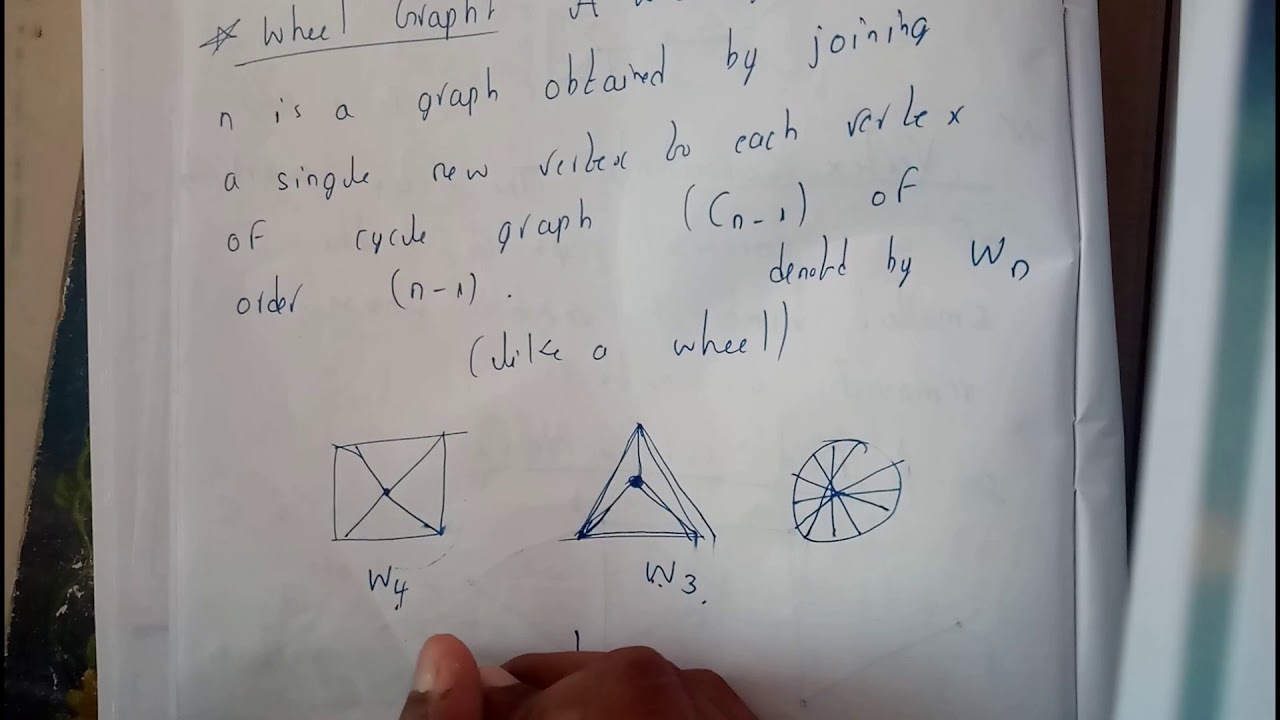 * Wheel Graph: A
n is a graph obtained by joining
a single new vertex to each vertex
of cycle graph (Cn-1) of
order (n-1). denoted by Wn
(like a wheel)
W4 W3.